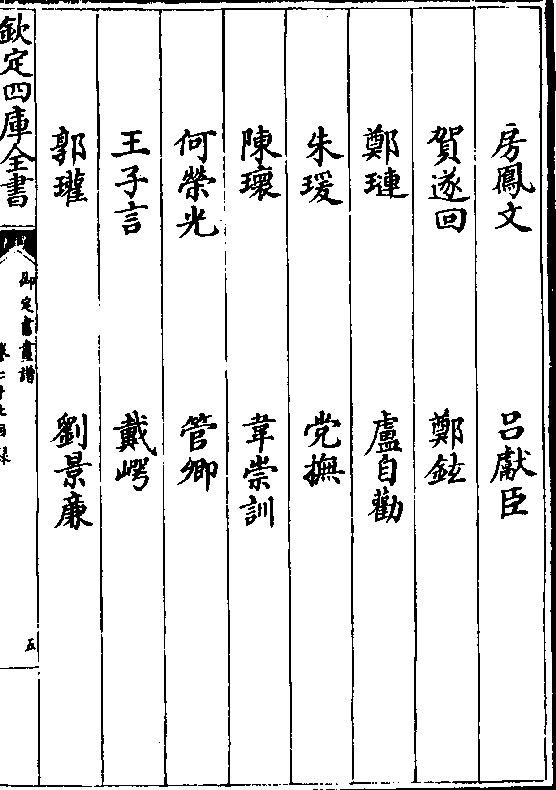 房鳳文　呂獻臣
賀遂回　鄭鉉
鄭璉　盧自勸
朱瑗　党撫
陳瓌　韋崇訓
何榮光　管卿
王子言　戴㟧
郭瓘　劉景廉
欽定四庫全書
御定書畫譜
五